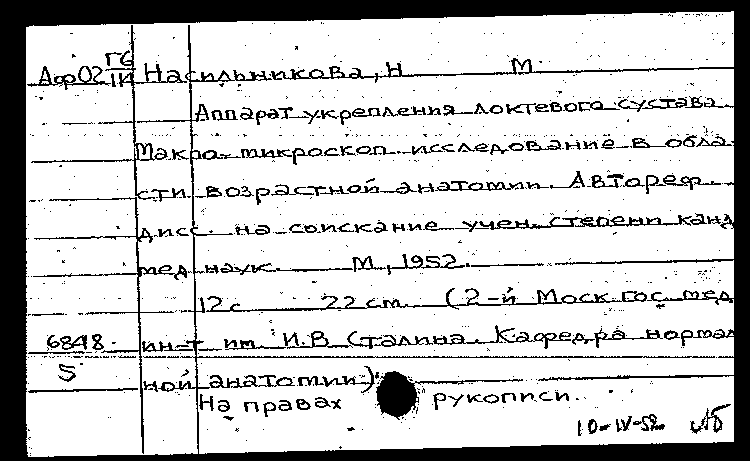 Аф02 Гб/III Насильникова, Н М.
Аппарат укрепления локтевого сустава
Макро-микроскоп. исследование в обла-
сти возрастной анатомии. Автореф.
дисс. на соискание учен. степени канд
мед наук. М, 1952.
12 с 22 см. (2-й Моск гос. мед
6848. ин-т им. И.В Сталина. Кафедра нормал
5 ной анатомии)
На правах рукописи.
10-IV-52